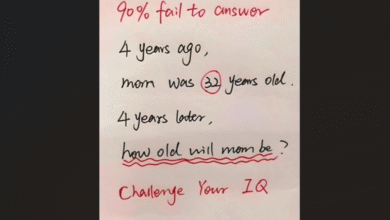 90% fail to answer
4 years ago,
mom was 32 years old.
4 years later,
how old will mom be?
Challenge Your IQ